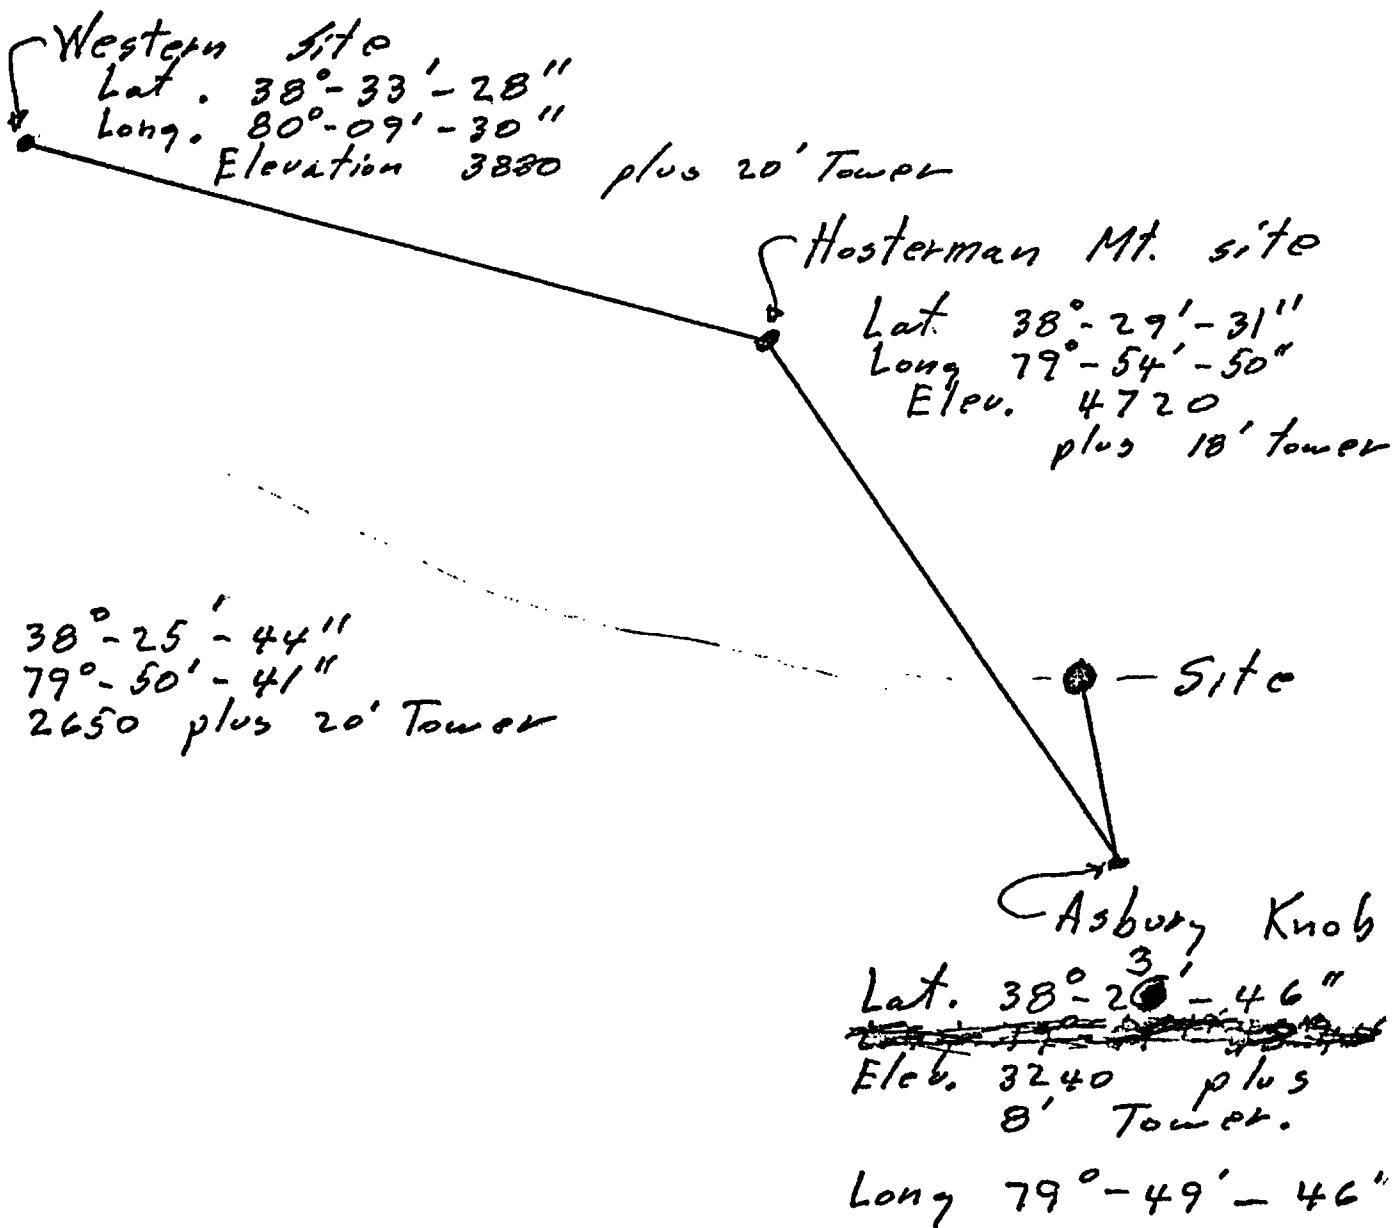 Western Site
Lat. 38°-33'-28"
Long. 80°-09'-30"
Elevation 3830 plus 20' Tower
Hosterman Mt. site
Lat. 38°-29'-31"
Long 79°-54'-50"
Elev. 4720
plus 18' tower
38°-25'-44"
79°-50'-41"
2650 plus 20' Tower
Site
Asbury Knob
3
Lat. 38°-2 '-46"
Elev. 3240 plus
8' Tower.
Long 79°-49'-46"